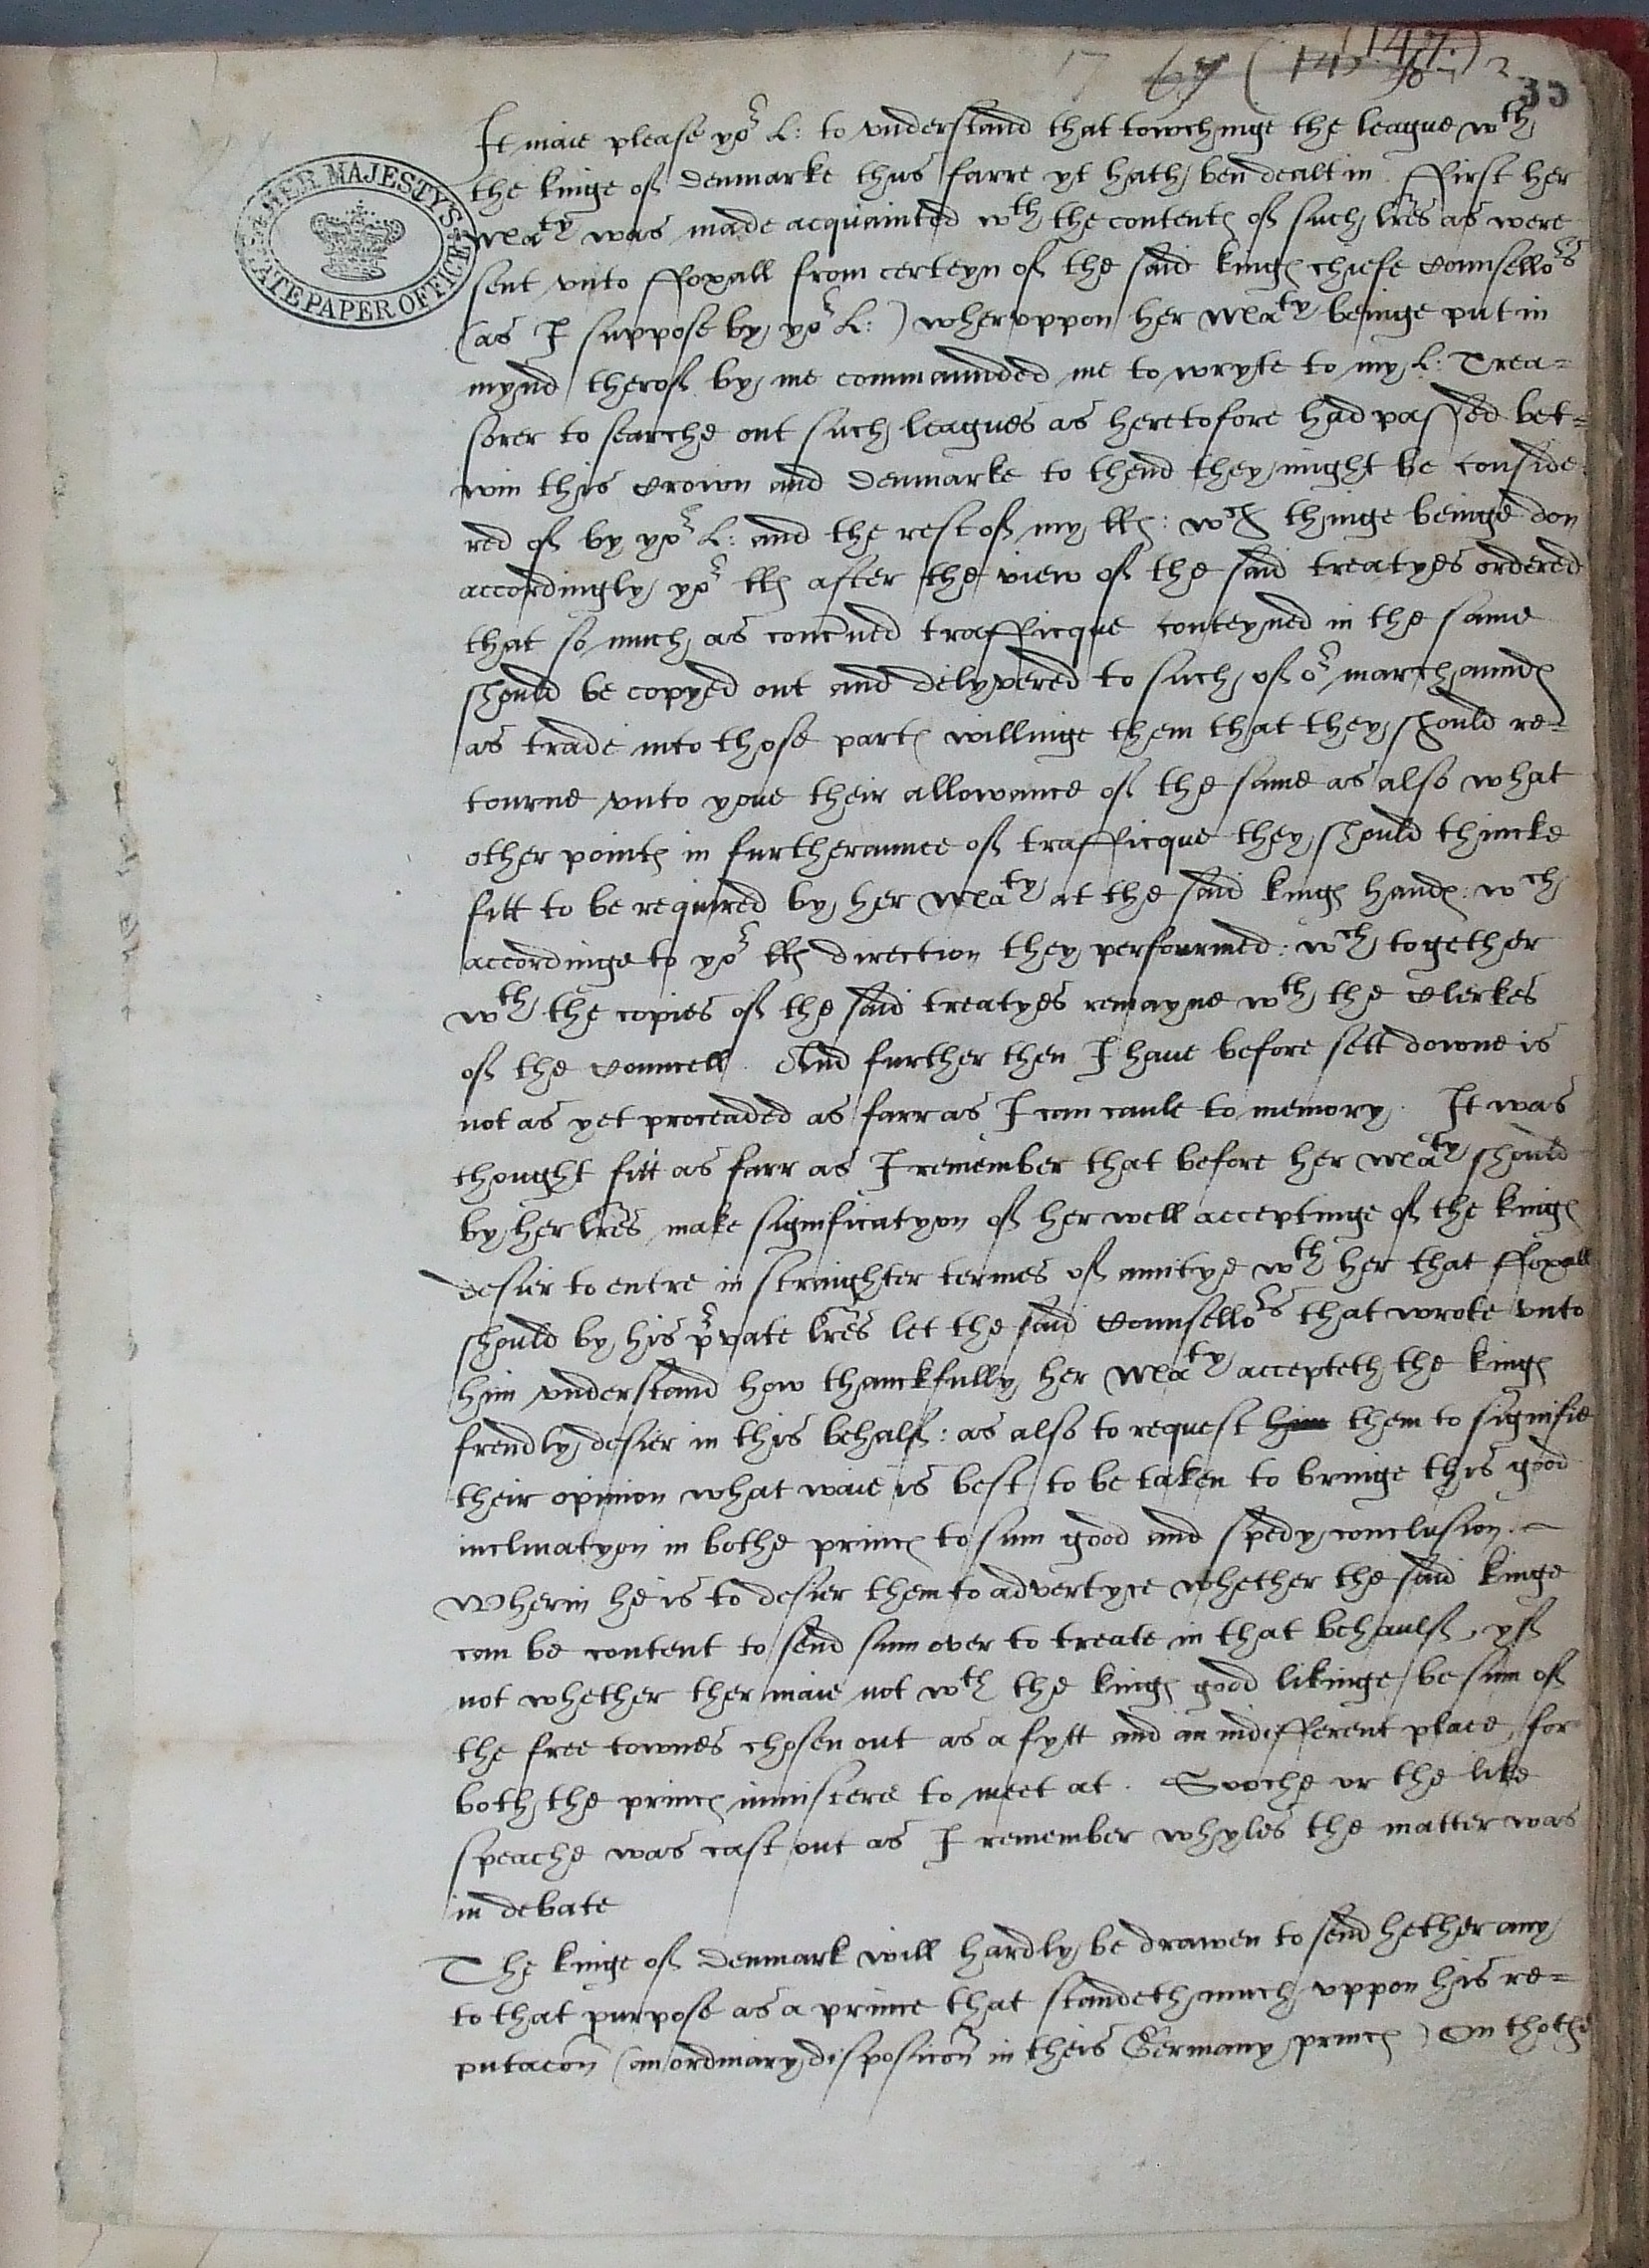 35
HER MAJESTY'S STATE PAPER OFFICE
It maie please yor L: to vnderstand that towchinge the league wth
the kinge of Denmarke thus farre yt hath ben dealt in. ffirst her
Maty was made acquainted wth the contentes of such lres as were
sent vnto ffoxall from certeyn of the said kinges chiefe Counsellors
(as I suppose by yor L:) wheruppon her Maty beinge put in
mynd therof by me commaunded me to wryte to my L: Trea=
sorer to searche out such leagues as heretofore had passed bet=
win this Crown and Denmarke to thend they might be conside=
red of by yor L: and the rest of my lls: wch thinge beinge don
accordingly yor lls after the view of the said treatyes ordered
that so much as concned trafficque conteyned in the same
should be copyed out and delyvered to such of or marchauntes
as trade into those partes willinge them that they should re=
tourne vnto youe their allowance of the same as also what
other pointes in furtheraunce of trafficque they should thincke
fitt to be required by her Maty at the said kinges handes: wch
accordinge to yor lls direction they perfourmed: wch together
wth the copies of the said treatyes remayne wth the Clerkes
of the Councell. And further then I haue before sett downe is
not as yet proceaded as farr as I can caule to memory. It was
thought fitt as farr as I remember that before her Maty should
by her lres make significatyon of her well acceptinge of the kinges
desier to entre in straighter termes of amitye wth her that ffoxall
should by his pvate lres let the said Counsellors that wrote vnto
him vnderstand how thanckfully her Maty accepteth the kinges
frendly desier in this behalf: as also to request him them to signifie
their opinion what waie is best to be taken to bringe this good
inclinatyon in bothe princes to sum good and spedy conclusion.
Wherin he is to desier them to advertyse whether the said kinge
can be content to send sum over to treate in that behaulf, yf
not whether ther maie not wth the kinges good likinge be sum of
the free townes chosen out as a fytt and an indifferent place, for
both the princes ministers to meet at. Svoche or the like
speache was cast out as I remember whyles the matter was
in debate
The kinge of Denmark will hardly be drawen to send hether any
to that purpose as a prince that standeth much vppon his re=
putacon (an ordinary disposicon in theis Germany princes) On thothe